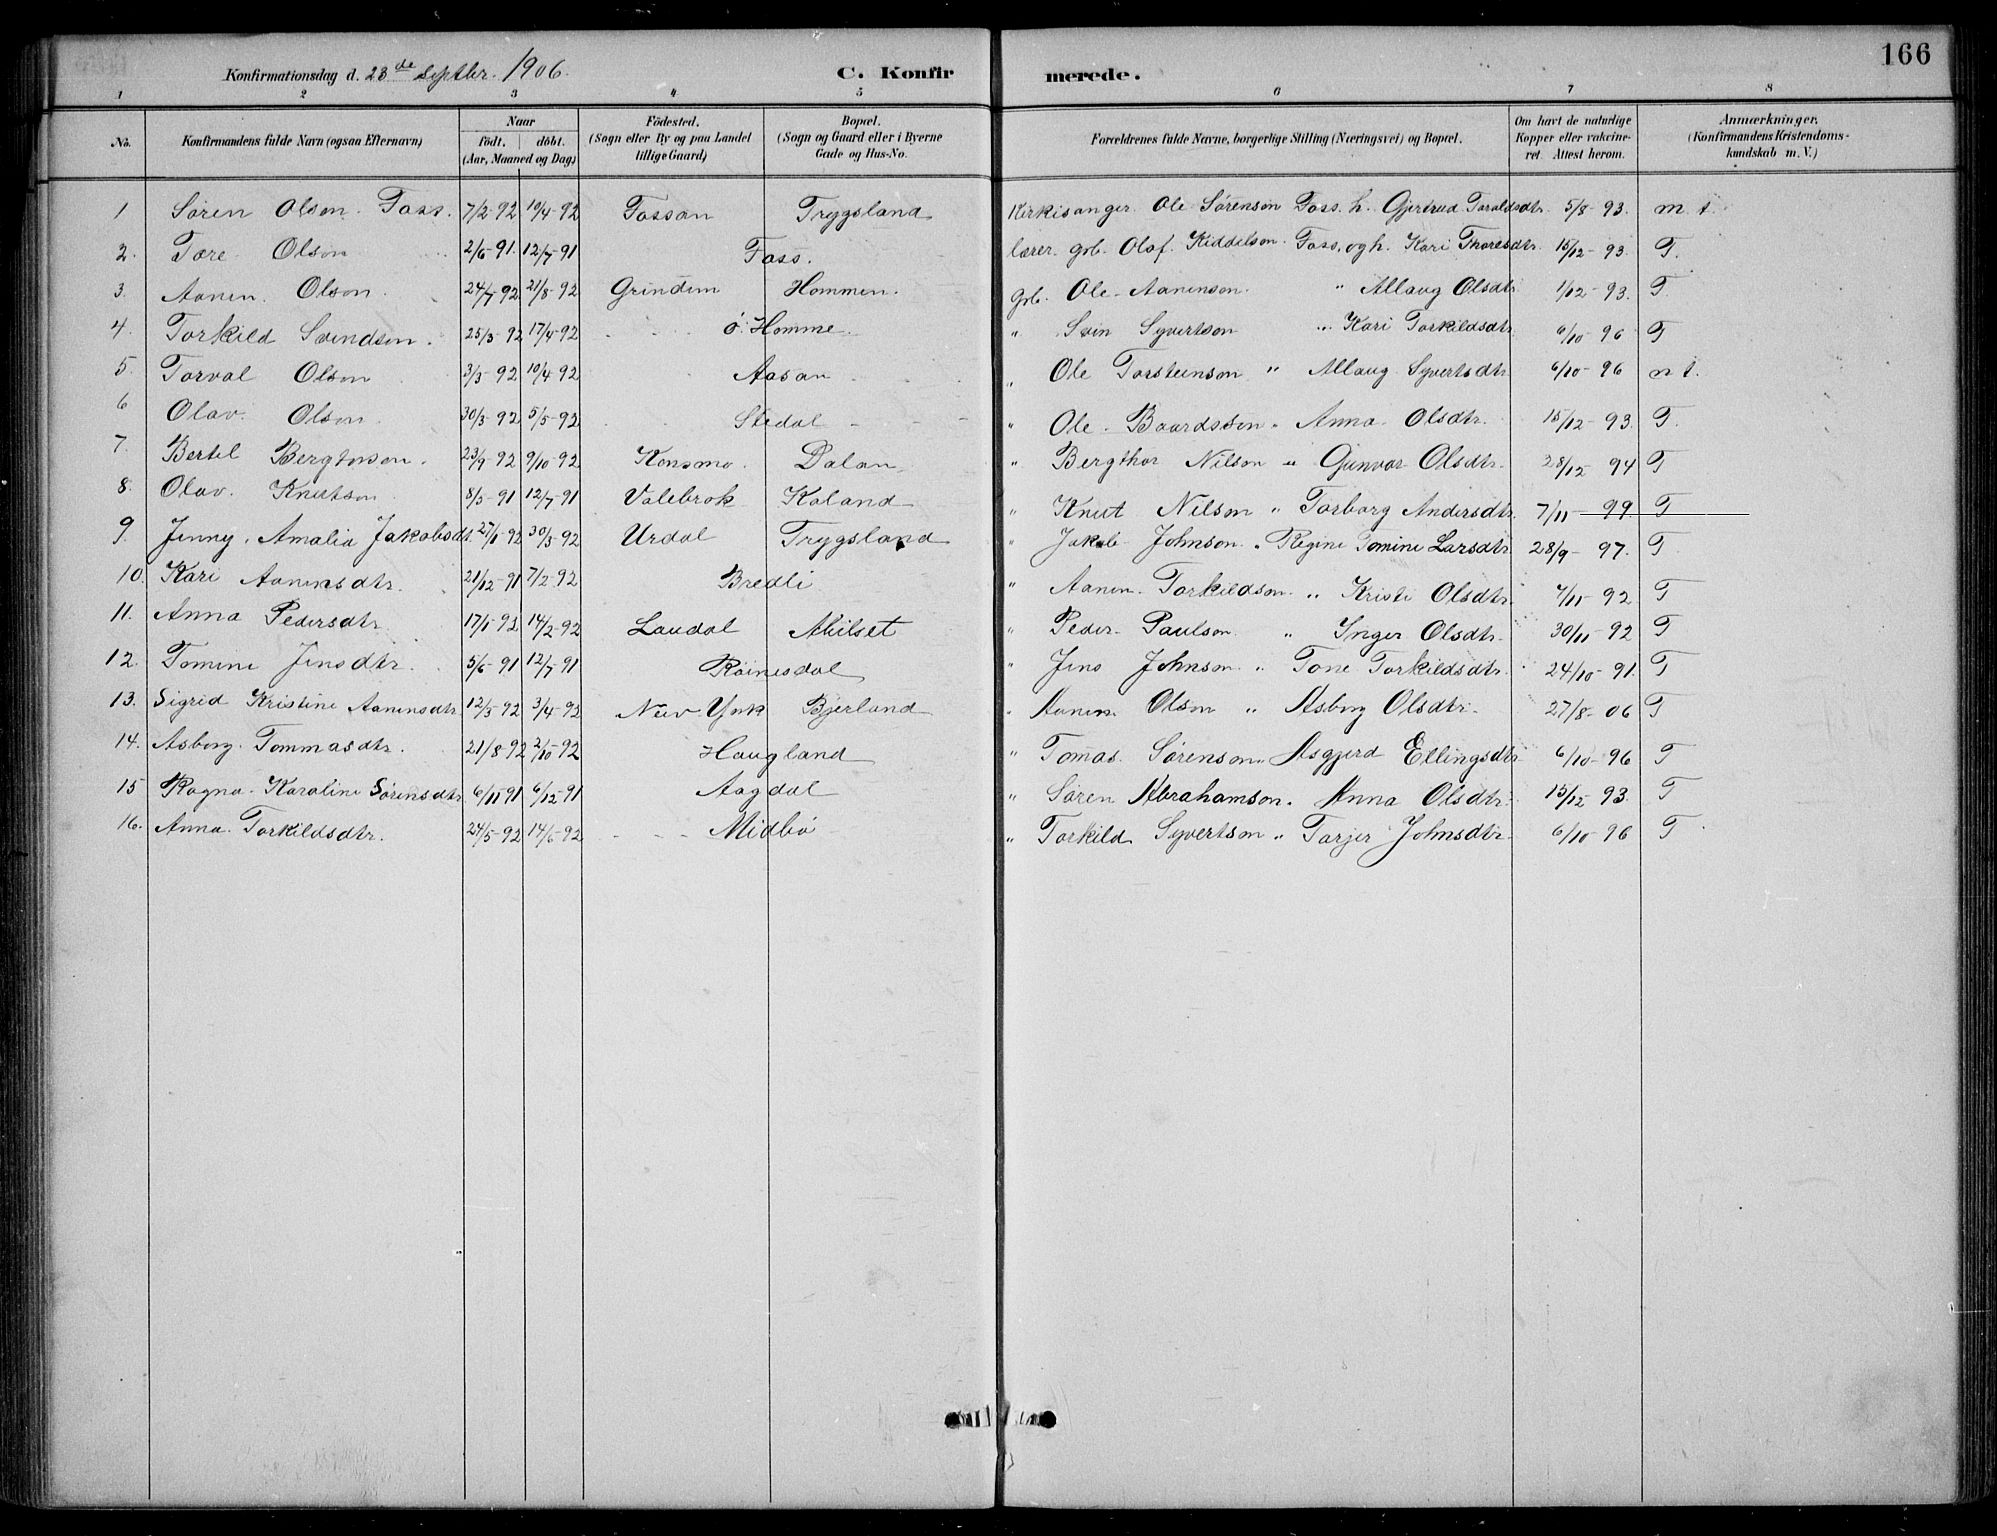 166
Konfirmationsdag d. 23de Septbr. 1906. C. Konfirmerede.
1 2 3 4 5 6 7 8
No. Konfirmandens fulde Navn (ogsaa Efternavn) Naar födt. döbt. (Aar, Maaned og Dag) Födested. (Sogn eller By og paa Landet tillige Gaard) Bopæl. (Sogn og Gaard eller i Byerne Gade og Hus-No. Forældrenes fulde Navne, borgerlige Stilling (Næringsvei) og Bopæl. Om havt de naturlige Kopper eller vakcineret. Attest herom. Anmærkninger. (Konfirmandens Kristendomskundskab m. V.)
1 Søren Olson Foss. 7/2-92 10/4-92 Fossan Trygsland Kirkisanger Ole Sørenson Foss. h. Gjertrud Taraldsdtr. 5/8-93. m t.
2. Tore Olson 2/6-91. 12/7-91 Foss. lærer. grb. Olaf Kiddelson Foss. og h. Kari Thoresdtr. 15/12-93. T.
3. Aanen Olson 24/7-92 21/8-92 Grindem Hommen. grb. Ole Aanenson " Allaug Olsdtr 1/12-93. T.
4 Torkild Svendsen. 25/3-92 17/4-92 ö. Homme. " Svin Syvertson " Kari Torkildsdtr. 6/10-96 T
5. Torval Olson 3/3-92 10/4-92 Aasan " Ole Torsteinson " Allaug Syvertsdtr 6/10-96 m t.
6 Olav. Olson. 30/3-92 5/5-92 Stedal " Ole Baardsson " Anna Olsdtr. 15/12-93. T.
7. Bertel Bergtorson. 23/9-92 9/10-92 Konsmo. Dalan " Bergthor Nilson " Gunvor Olsdtr. 28/12 94 T
8. Olav. Knutson 8/5-91 12/7-91 Valebrok Kaland " Knut Nilson " Torborg Andersdtr. 7/11-99. T
9. Jenny. Amalia Jakobsdt. 27/1-92 30/3-92 Urdal Trygsland " Jakob Johnson. " Regine Tomine Larsdtr. 28/9-97. T.
10. Kari Aanensdtr. 21/12-91 7/2-92 Bredli " Aanen Torkildson. " Kristi Olsdtr. 4/11-92 T
11. Anna Pedersdtr. 17/1-92 14/2-92 Laudal Milset " Peder Paulson. " Inger Olsdtr. 30/11-92 T
12. Tomine Jensdtr. 5/6-91 12/7-91 Röinesdal " Jens Johnson. " Tone Torkildsdtr. 24/10-91. T
13. Sigrid Kristine Aanensdtr 12/3-92 3/4-92 New York Bjerland " Aanen Olson " Asborg Olsdtr. 27/8-06 T
14. Asborg. Tommasdtr. 21/8-92 2/10-92 Haugland " Tomas Sørenson " Asgjerd Ellingsdtr 6/10-96 T
15 Ragna Karoline Sörensdtr 6/11 91 6/12-91 Aagdal " Søren Abrahamson. Anna Olsdtr. 15/12 93. T
16. Anna. Torkildsdtr. 24/5-92 14/6-92 Midbö " Torkild Syvertson " Tarjer Johnsdtr 6/10-96 T